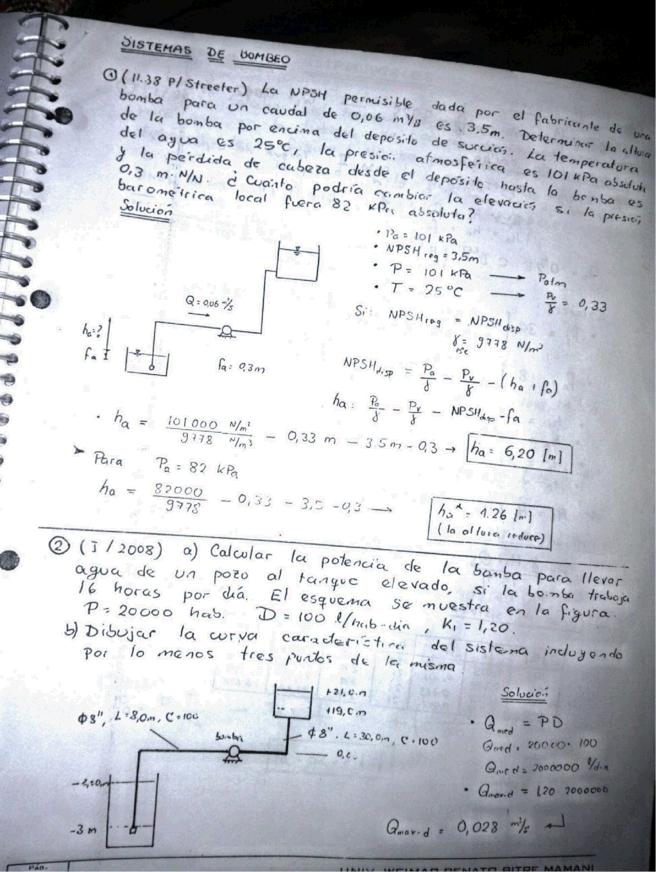 SISTEMAS DE BOMBEO
① (11.38 P/Streeter) La NPSH permisible dada por el fabricante de una
bomba para un caudal de 0,06 m³/s es 3.5m. Determinar la altura
de la bomba por encima del deposito de succion. La temperatura
del agua es 25°C, la presion atmosferica es 101 kPa absoluta
y la perdida de cabeza desde el deposito hasta la bomba es
0,3 m·N/N. ¿ Cuanto podria cambiar la elevacion si la presion
barometrica local fuera 82 kPa absoluta?
Solucion
• Pa = 101 kPa
• NPSH req = 3,5m
• P = 101 kPa → Patm
• T = 25 °C → Pv/γ = 0,33
Q = 0,06
ha=?
fa
fa = 0,3m
Si: NPSH req = NPSH disp
γ = 9778 N/m³
NPSH disp = Pa/γ - Pv/γ - (ha + fa)
ha = Pa/γ - Pv/γ - NPSH disp - fa
• ha = 101000 N/m² / 9778 N/m³ - 0,33 m - 3.5m - 0,3 → ha = 6,20 [m]
➤ Para Pa = 82 kPa
ha = 82000 / 9778 - 0,33 - 3,5 - 0,3 → ha* = 4.26 [m]
(la altura
② (I / 2008) a) Calcular la potencia de la bomba para llevar
agua de un pozo al tanque elevado, si la bomba trabaja
16 horas por dia. El esquema se muestra en la figura.
P = 20000 hab. D = 100 l/hab-dia, K₁ = 1,20.
b) Dibujar la curva caracteristica del sistema incluyendo
por lo menos tres puntos de la misma
+21,0 m
+19,0 m
φ 8", L = 8,0m, C = 100
bomba
φ 8", L = 30,0m, C = 100
-3 m
Solucion
• Qmed = PD
Qmd = 20000 · 100
Qmed = 2000000 l/dia
• Qmax-d = 1.20 · 2000000
Qmax-d = 0,028 m³/s
PÁG.
UNIV. WEIMAR RENATO BITRE MAMANI